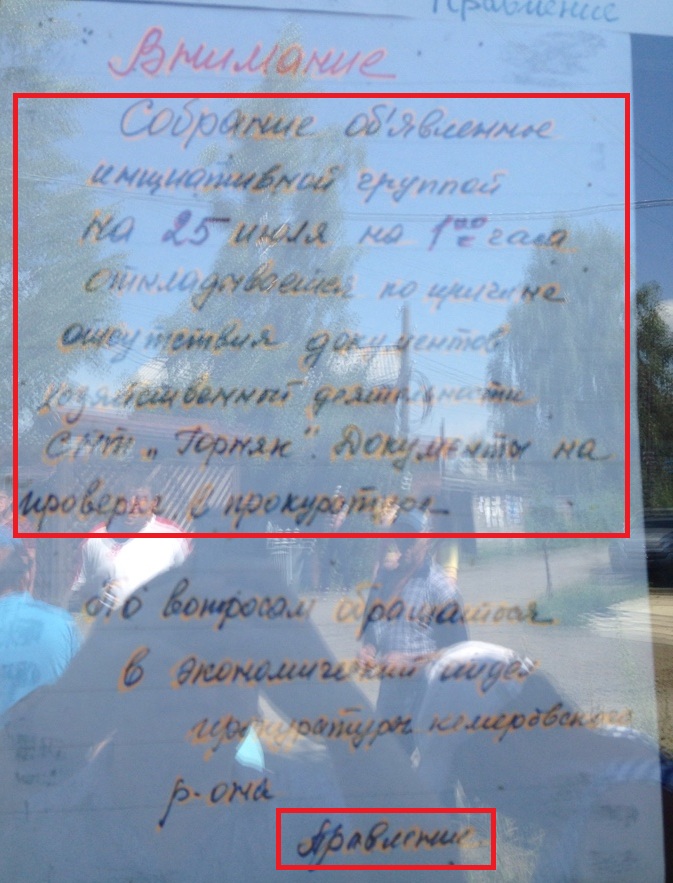 Правление
Внимание
Собрание об'явленное
инициативной группой
на 25 июля на 1⁰⁰ часа
откладывается по причине
отсутствия документов
хозяйственный деятельности
СНТ „Горняк". Документы на
проверке в прокуратуре
По вопросам обращаться
в экономический отдел
прокуратуры кемеровского
р-она
Правление